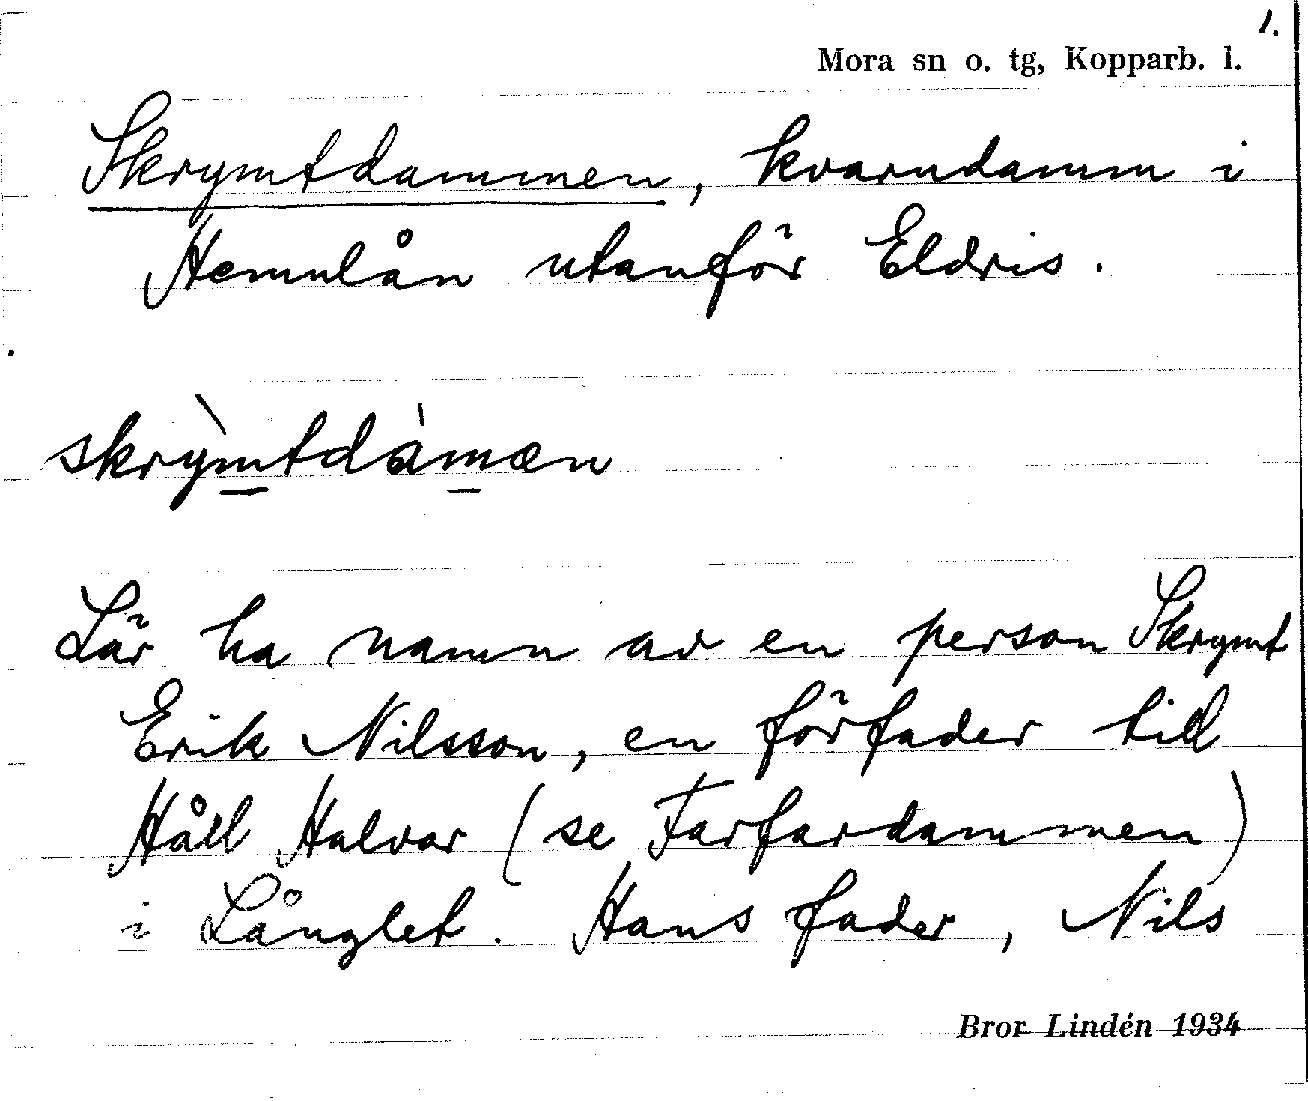 1.
Mora sn o. tg, Kopparb. l.
Skrymtdammen, kvarndamm i
Hemulån utanför Eldris.
skrỳmtdàmæn
Lär ha namn av en person Skrymt
Erik Nilsson, en förfader till
Håll Halvar (se Farfardammen)
i Långlet. Hans fader, Nils
Bror Lindén 1934